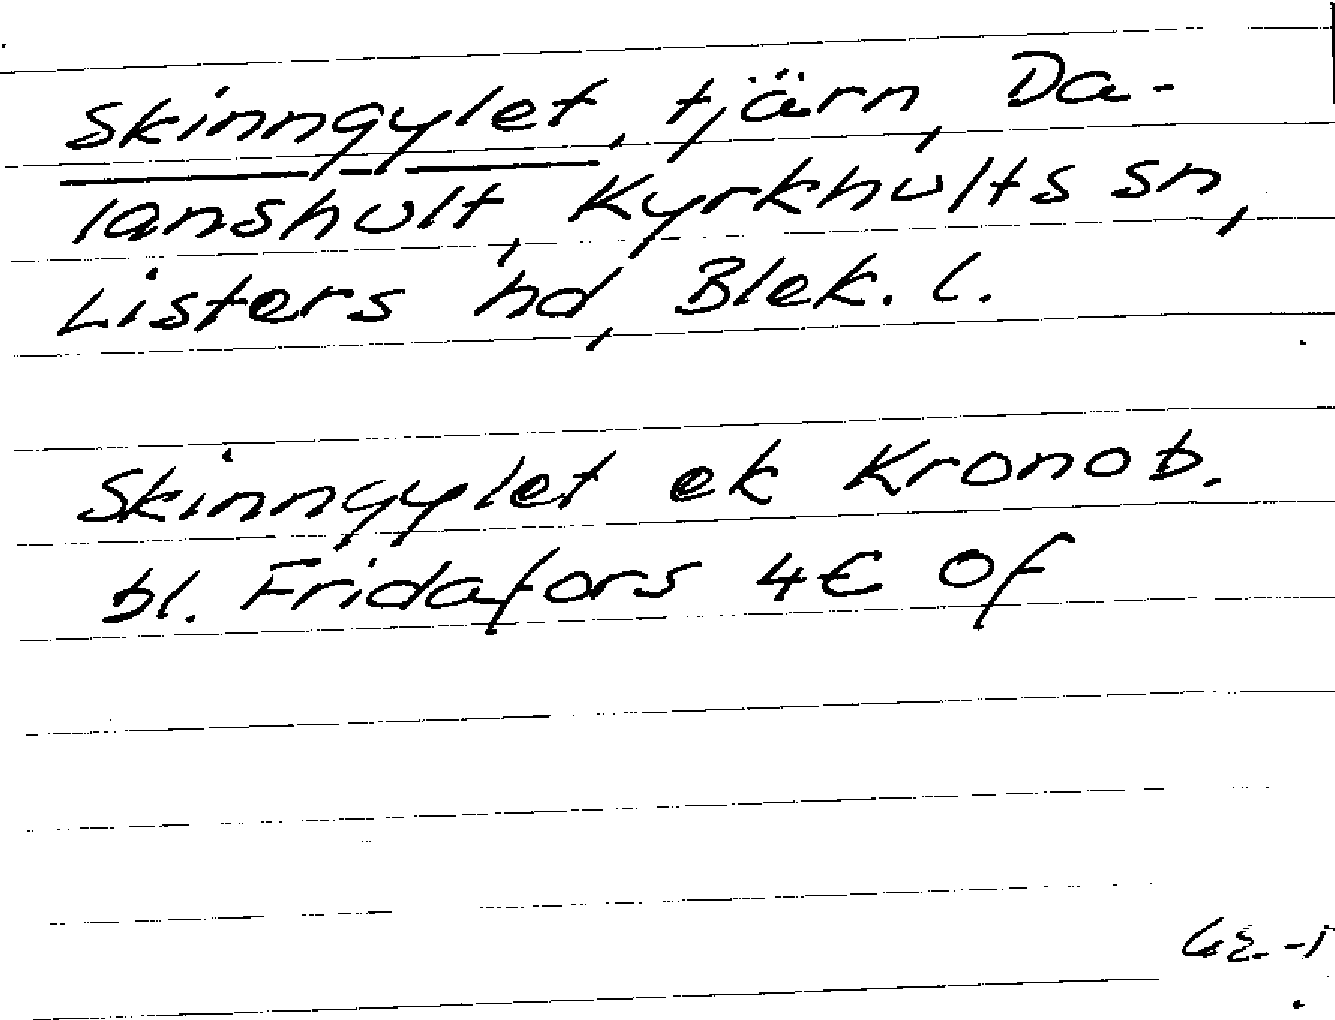 Skinngylet, tjärn, Da-
lanshult, Kyrkhults sn,
Listers hd, Blek. l.
Skinngylet ek Kronob.
bl. Fridafors 4€ Of